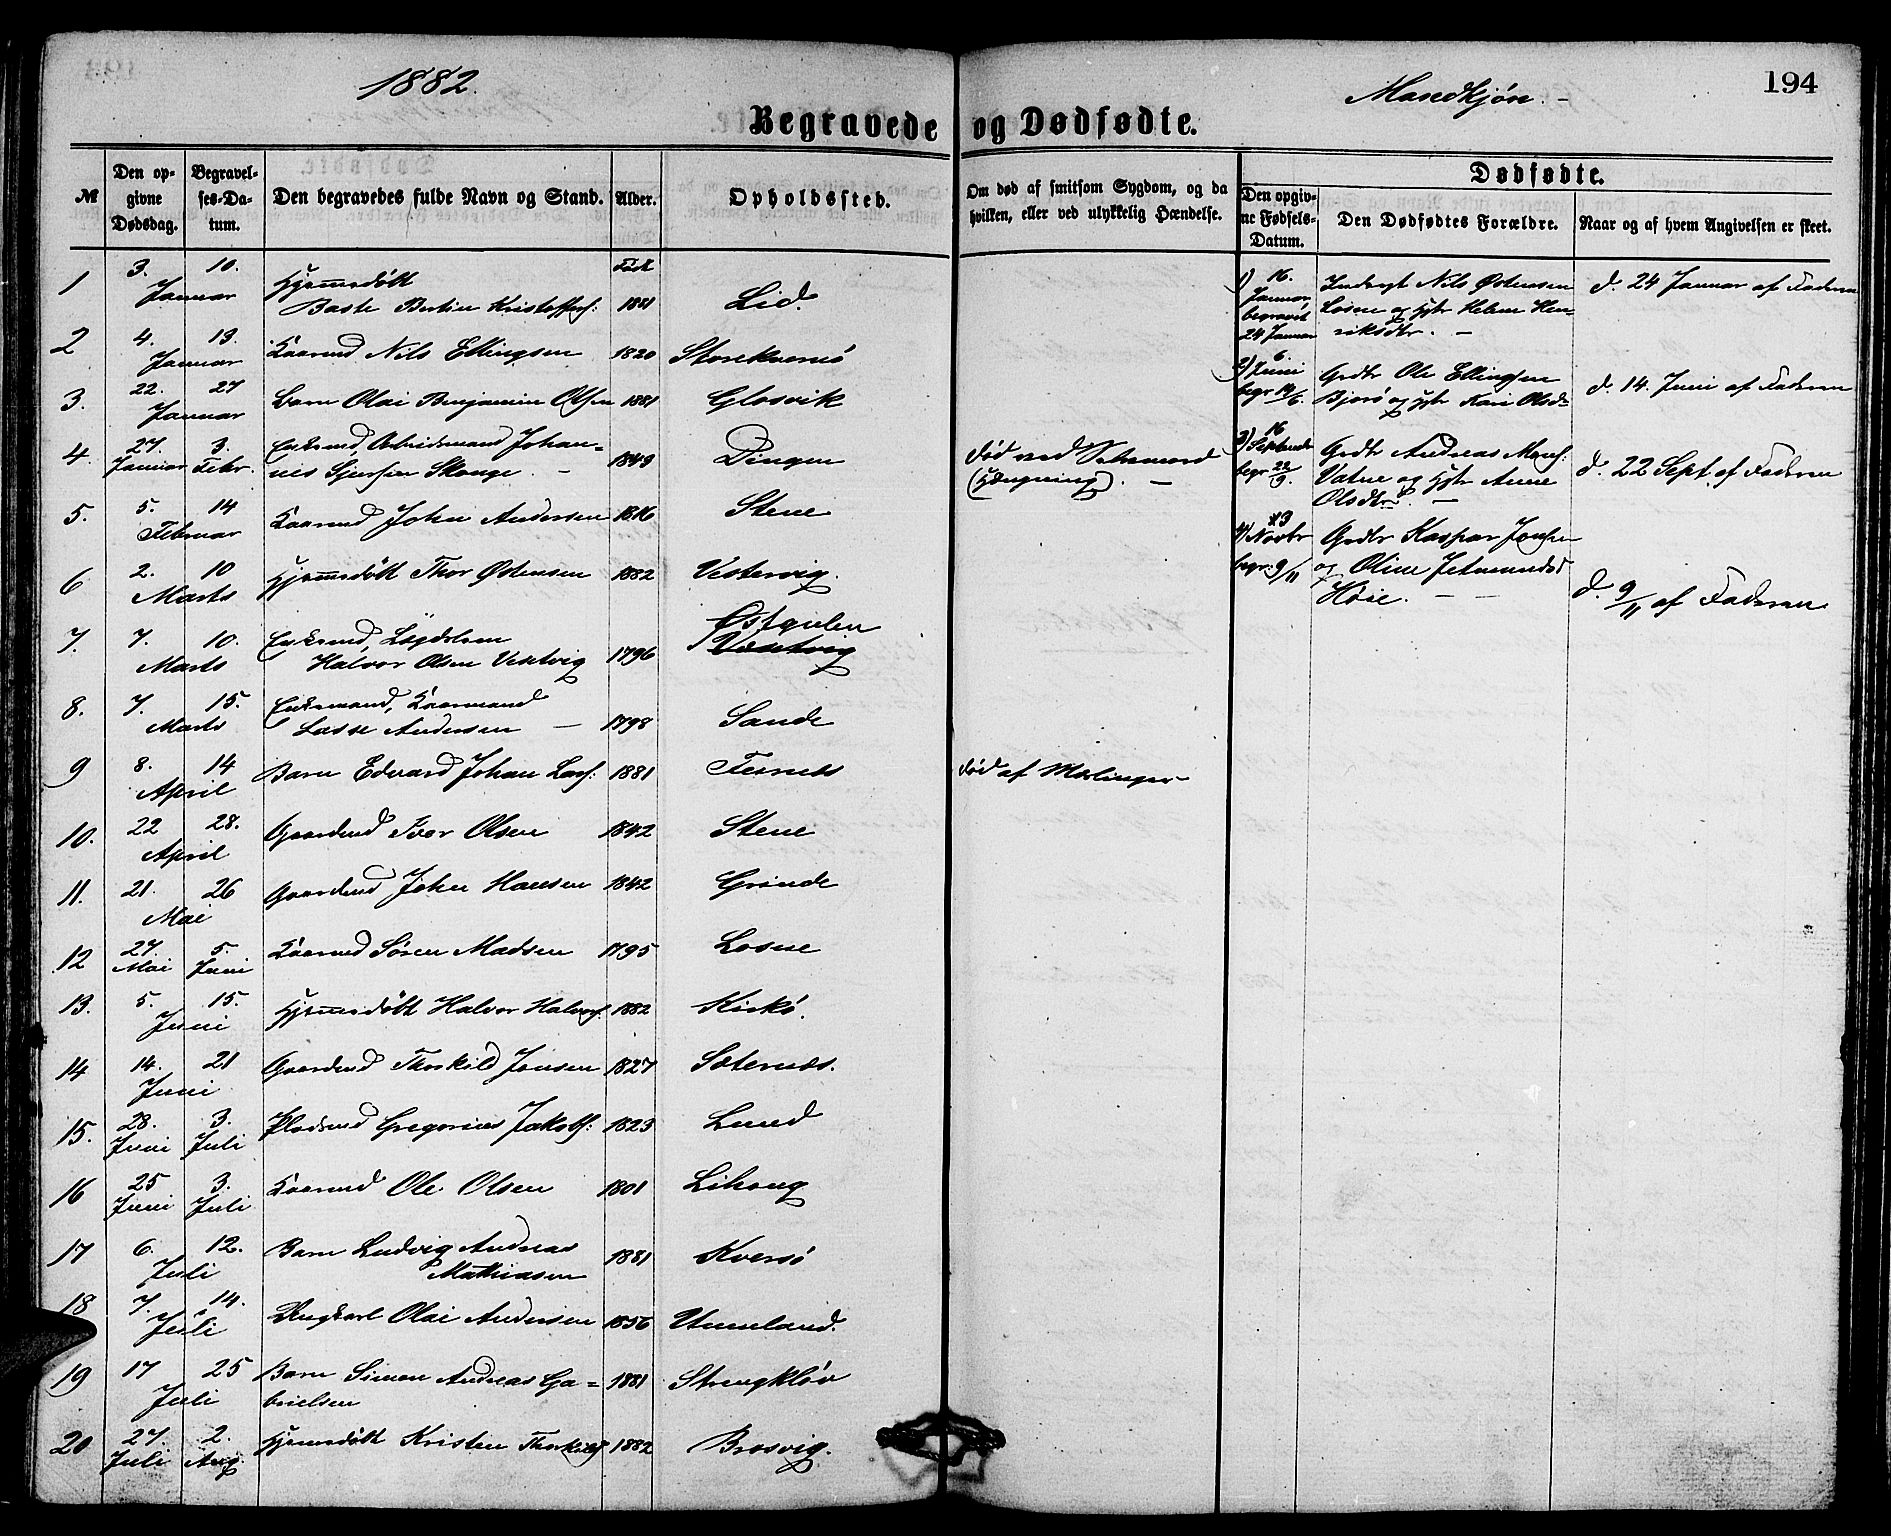 1882.
Mandkjøn. -
194
Begravede og Dødfødte.
№
Den opgivne Dødsdag.
Begravelses-Datum.
Den begravedes fulde Navn og Stand.
Alder.
Opholdssted.
Om død af smitsom Sygdom, og da hvilken, eller ved ulykkelig Hændelse.
Dødfødte.
Den opgivne Fødsels-Datum.
Den Dødfødtes Forældre.
Naar og af hvem Angivelsen er skeet.
1 3. Januar 10. Hjemmedøbt Baste Bertin Kristoffers: født 1881 Lid.
2 4. Januar 13. Kaarmd Nils Ellingsen 1820 Storekversø
3. 22. Januar 27 Barn Olai Benjamin Olsen 1881 Glosvik
4. 27. Januar 3. Febr. Enkemd, Arbeidsmand Johannes Skauge - 1849 Dingen død ved Selvmord (Hængning). -
5. 5. Februar 14 Kaarmd John Andersen 1816 Stene
6 2. Marts 10 Hjemmedøbt Thor Østensen 1882 Vestervig.
7. 7. Marts 10. Enkemd, Lægdslem Halvor Olsen Vestvig 1796 Østgulen Vestvig
8. 7. Marts 15. Enkemand, Kaarmand Lasse Andersen - 1798 Sande
9 8. April 14 Barn Edvard Johan Lars: 1881 Ternes død af Mæslinger
10. 22 April 28. Gaardmd Ivar Olsen 1842 Stene
11. 21. Mai 26 Gaardmd John Hansen 1842 Grinde
12 27. Mai 5. Juni Kaarmd Søren Madsen 1795 Losne
13. 5. Juni 15. Hjemmedøbt Halvor Halvors: 1882 Kirkø.
14 14. Juni 21 Gaardmd Thorkild Jensen 1827 Sæternes.
15. 28. Juni 3. Juli Pladsmd Gregorius Jakobs: 1823 Lund
16 25 Juni 3. Juli Kaarmd Ole Olsen 1801 Lihaug
17 6. Juli 12. Barn Ludvig Andreas Mathiasen 1881 Kversø
18 7. Juli 14. Ungkarl Olai Andersen 1856 Unneland.
19 17 Juli 25 Barn Simon Andreas Gabrielsen 1881 Strengkløv
20 27. Juli 2. Aug. Hjemmedøbt Kristen Thorkilds: 1882 Brosvig.
1) 16. Januar begravet 24 Januar Nils Østensen Losne og Hstr Helene Henriksdtr. - d. 24 Januar af Faderen
2) 6. Juni begr 14/6. Grdbr Ole Ellingsen Bjorø og Hstr Kari Olsd- d. 14. Juni af Faderen
3) 16 Septembr begr 22/9. Grdbr Andreas Mons: Vatne og Hstr Anne Olsdtr. - d. 22 Sept. af Faderen
4) 3 Novbr begr. 9/11 Grdbr Kaspar Jensen og Oline Jetmundsd Høie. - - d. 9/11 af Faderen